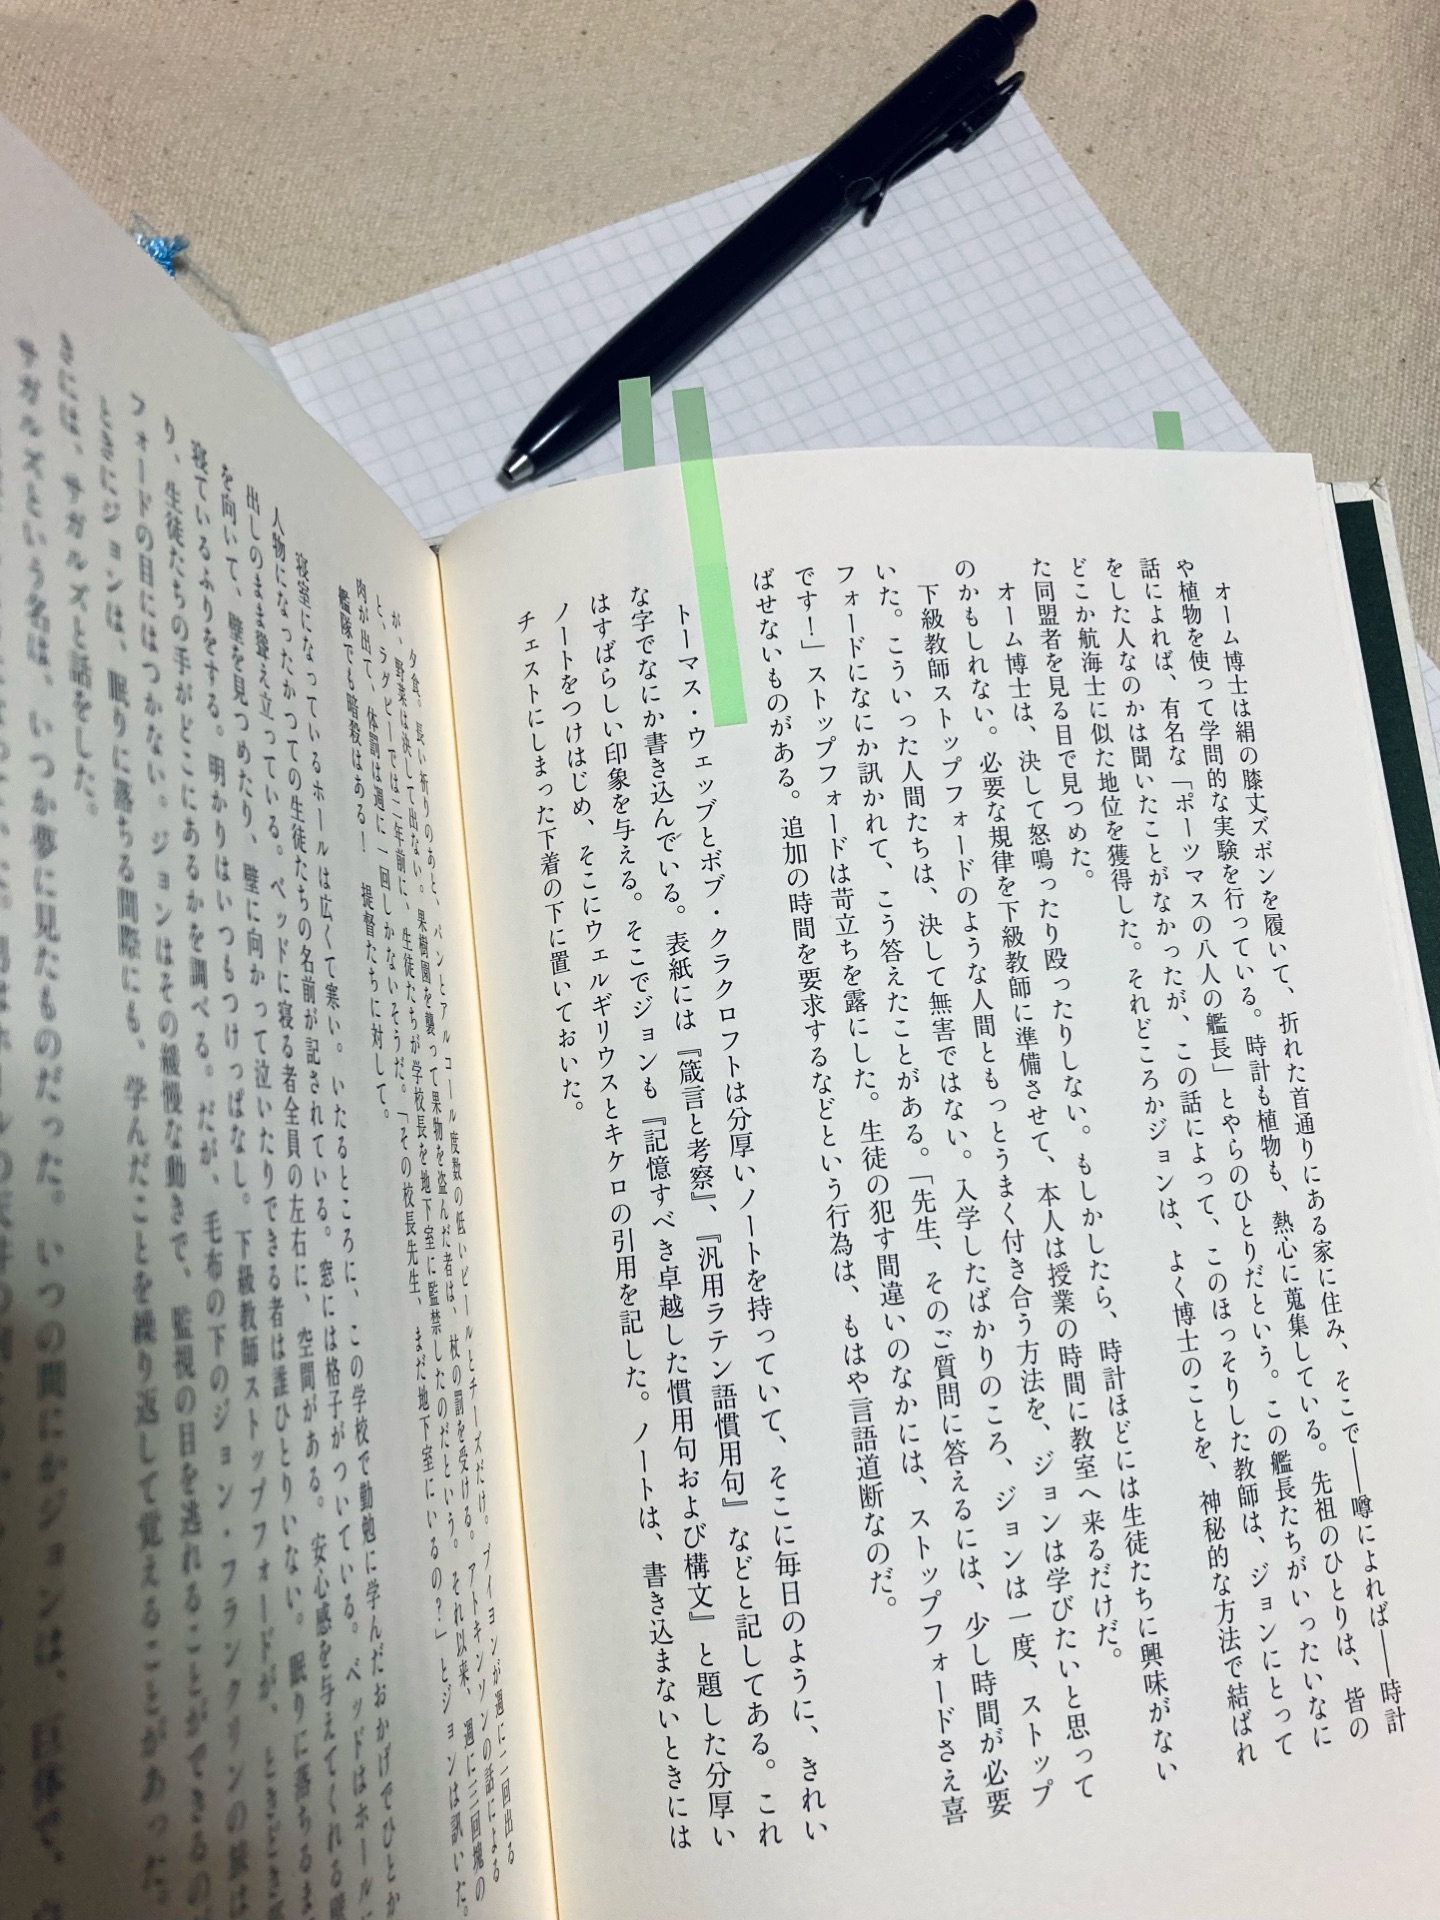 オーム博士は絹の膝丈ズボンを履いて、折れた首通りにある家に住み、そこで――噂によれば――時計
や植物を使って学問的な実験を行っている。時計も植物も、熱心に蒐集している。先祖のひとりは、皆の
話によれば、有名な「ポーツマスの八人の艦長」とやらのひとりだという。この艦長たちがいったいなに
をした人なのかは聞いたことがなかったが、この話によって、このほっそりした教師は、ジョンにとって
どこか航海士に似た地位を獲得した。それどころかジョンは、よく博士のことを、神秘的な方法で結ばれ
た同盟者を見る目で見つめた。
オーム博士は、決して怒鳴ったり殴ったりしない。もしかしたら、時計ほどには生徒たちに興味がない
のかもしれない。必要な規律を下級教師に準備させて、本人は授業の時間に教室へ来るだけだ。
下級教師ストップフォードのような人間ともっとうまく付き合う方法を、ジョンは学びたいと思って
いた。こういった人間たちは、決して無害ではない。入学したばかりのころ、ジョンは一度、ストップ
フォードになにか訊かれて、こう答えたことがある。「先生、そのご質問に答えるには、少し時間が必要
です！」ストップフォードは苛立ちを露にした。生徒の犯す間違いのなかには、ストップフォードさえ喜
ばせないものがある。追加の時間を要求するなどという行為は、もはや言語道断なのだ。
トーマス・ウェッブとボブ・クラクロフトは分厚いノートを持っていて、そこに毎日のように、きれい
な字でなにか書き込んでいる。表紙には『箴言と考察』、『汎用ラテン語慣用句』などと記してある。これ
はすばらしい印象を与える。そこでジョンも『記憶すべき卓越した慣用句および構文』と題した分厚い
ノートをつけはじめ、そこにウェルギリウスとキケロの引用を記した。ノートは、書き込まないときには
チェストにしまった下着の下に置いておいた。
夕食。長い祈りのあと、パンとアルコール度数の低いビールとチーズだけ。ブイヨンが週に二回出る
が、野菜は決して出ない。果樹園を襲って果物を盗んだ者は、杖の罰を受ける。アトキンソンの話による
と、ラグビーでは二年前に、生徒たちが学校長を地下室に監禁したのだという。それ以来、週に三回塊の
肉が出て、体罰は週に一回しかないそうだ。「その校長先生、まだ地下室にいるの？」とジョンは訊いた。
艦隊でも暗殺はある！　提督たちに対して。
寝室になっているホールは広くて寒い。いたるところに、この学校で勤勉に学んだおかげでひとか
人物になったかつての生徒たちの名前が記されている。窓には格子がついている。ベッドはホールに
出しのまま聳え立っている。ベッドに寝る者全員の左右に、空間がある。安心感を与えてくれる壁
を向いて、壁を見つめたり、壁に向かって泣いたりできる者は誰ひとりいない。眠りに落ちるま
寝ているふりをする。明かりはいつもつけっぱなし。下級教師ストップフォードが、ときどき
り、生徒たちの手がどこにあるかを調べる。だが、毛布の下のジョン・フランクリンの旅は
フォードの目にはつかない。ジョンはその緩慢な動きで、監視の目を逃れることができるの
ときにジョンは、眠りに落ちる間際にも、学んだことを繰り返して覚えることがあった。
きには、サガルズと話をした。
サガルズという名は、いつか夢に見たものだった。いつの間にかジョンは、巨体で、